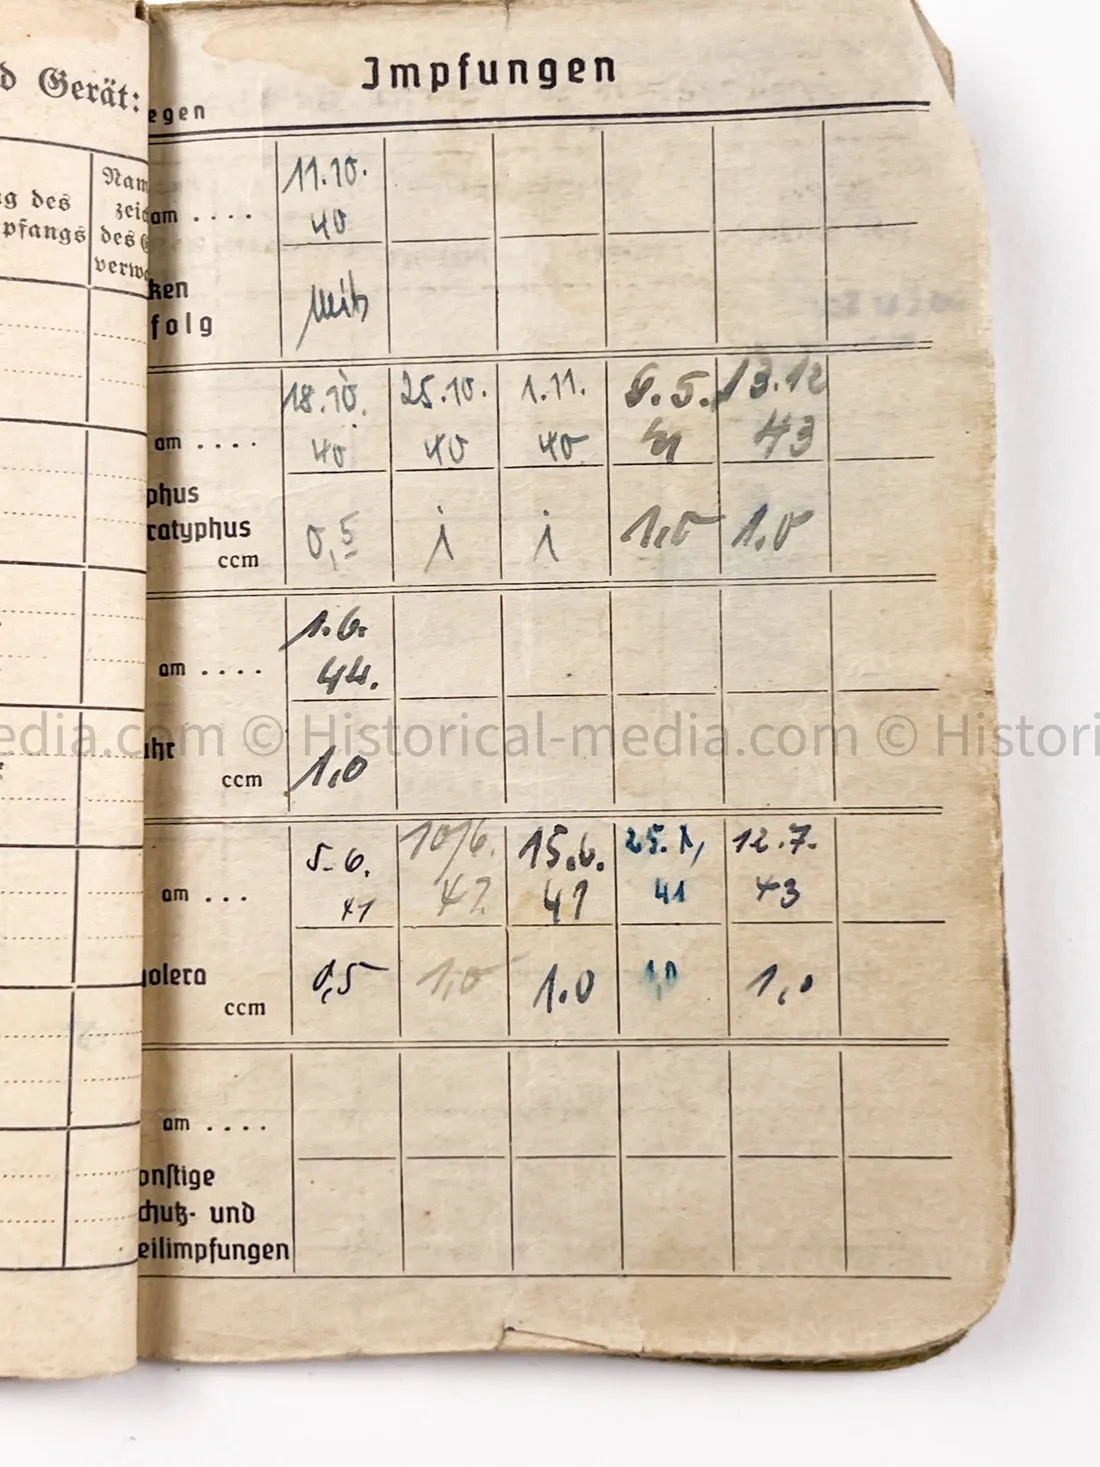 d Gerät:
g des
pfangs
Nam
zei
des
verw
Impfungen
egen
11.10.
am . . . .
40
ken
folg
mit
18.10. 25.10. 1.11. 6.5. 13.12
am . . . .
40 40 40 43
phus
ratyphus
ccm
0,5 i i 1,0 1.0
1.6.
am . . . .
44.
uhr
ccm
1,0
5.6. 10/6. 15.6. 12.7.
am . . .
41 41 41 43
holera
ccm
0,5 1,0 1.0 1,0 1,0
am . . . .
onstige
chutz- und
eilimpfungen
edia.com © Historical-media.com © Histori